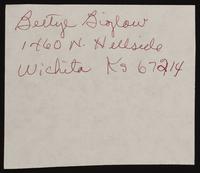 Bettye Biglow
1460 N. Hillside
Wichita Ks 67214